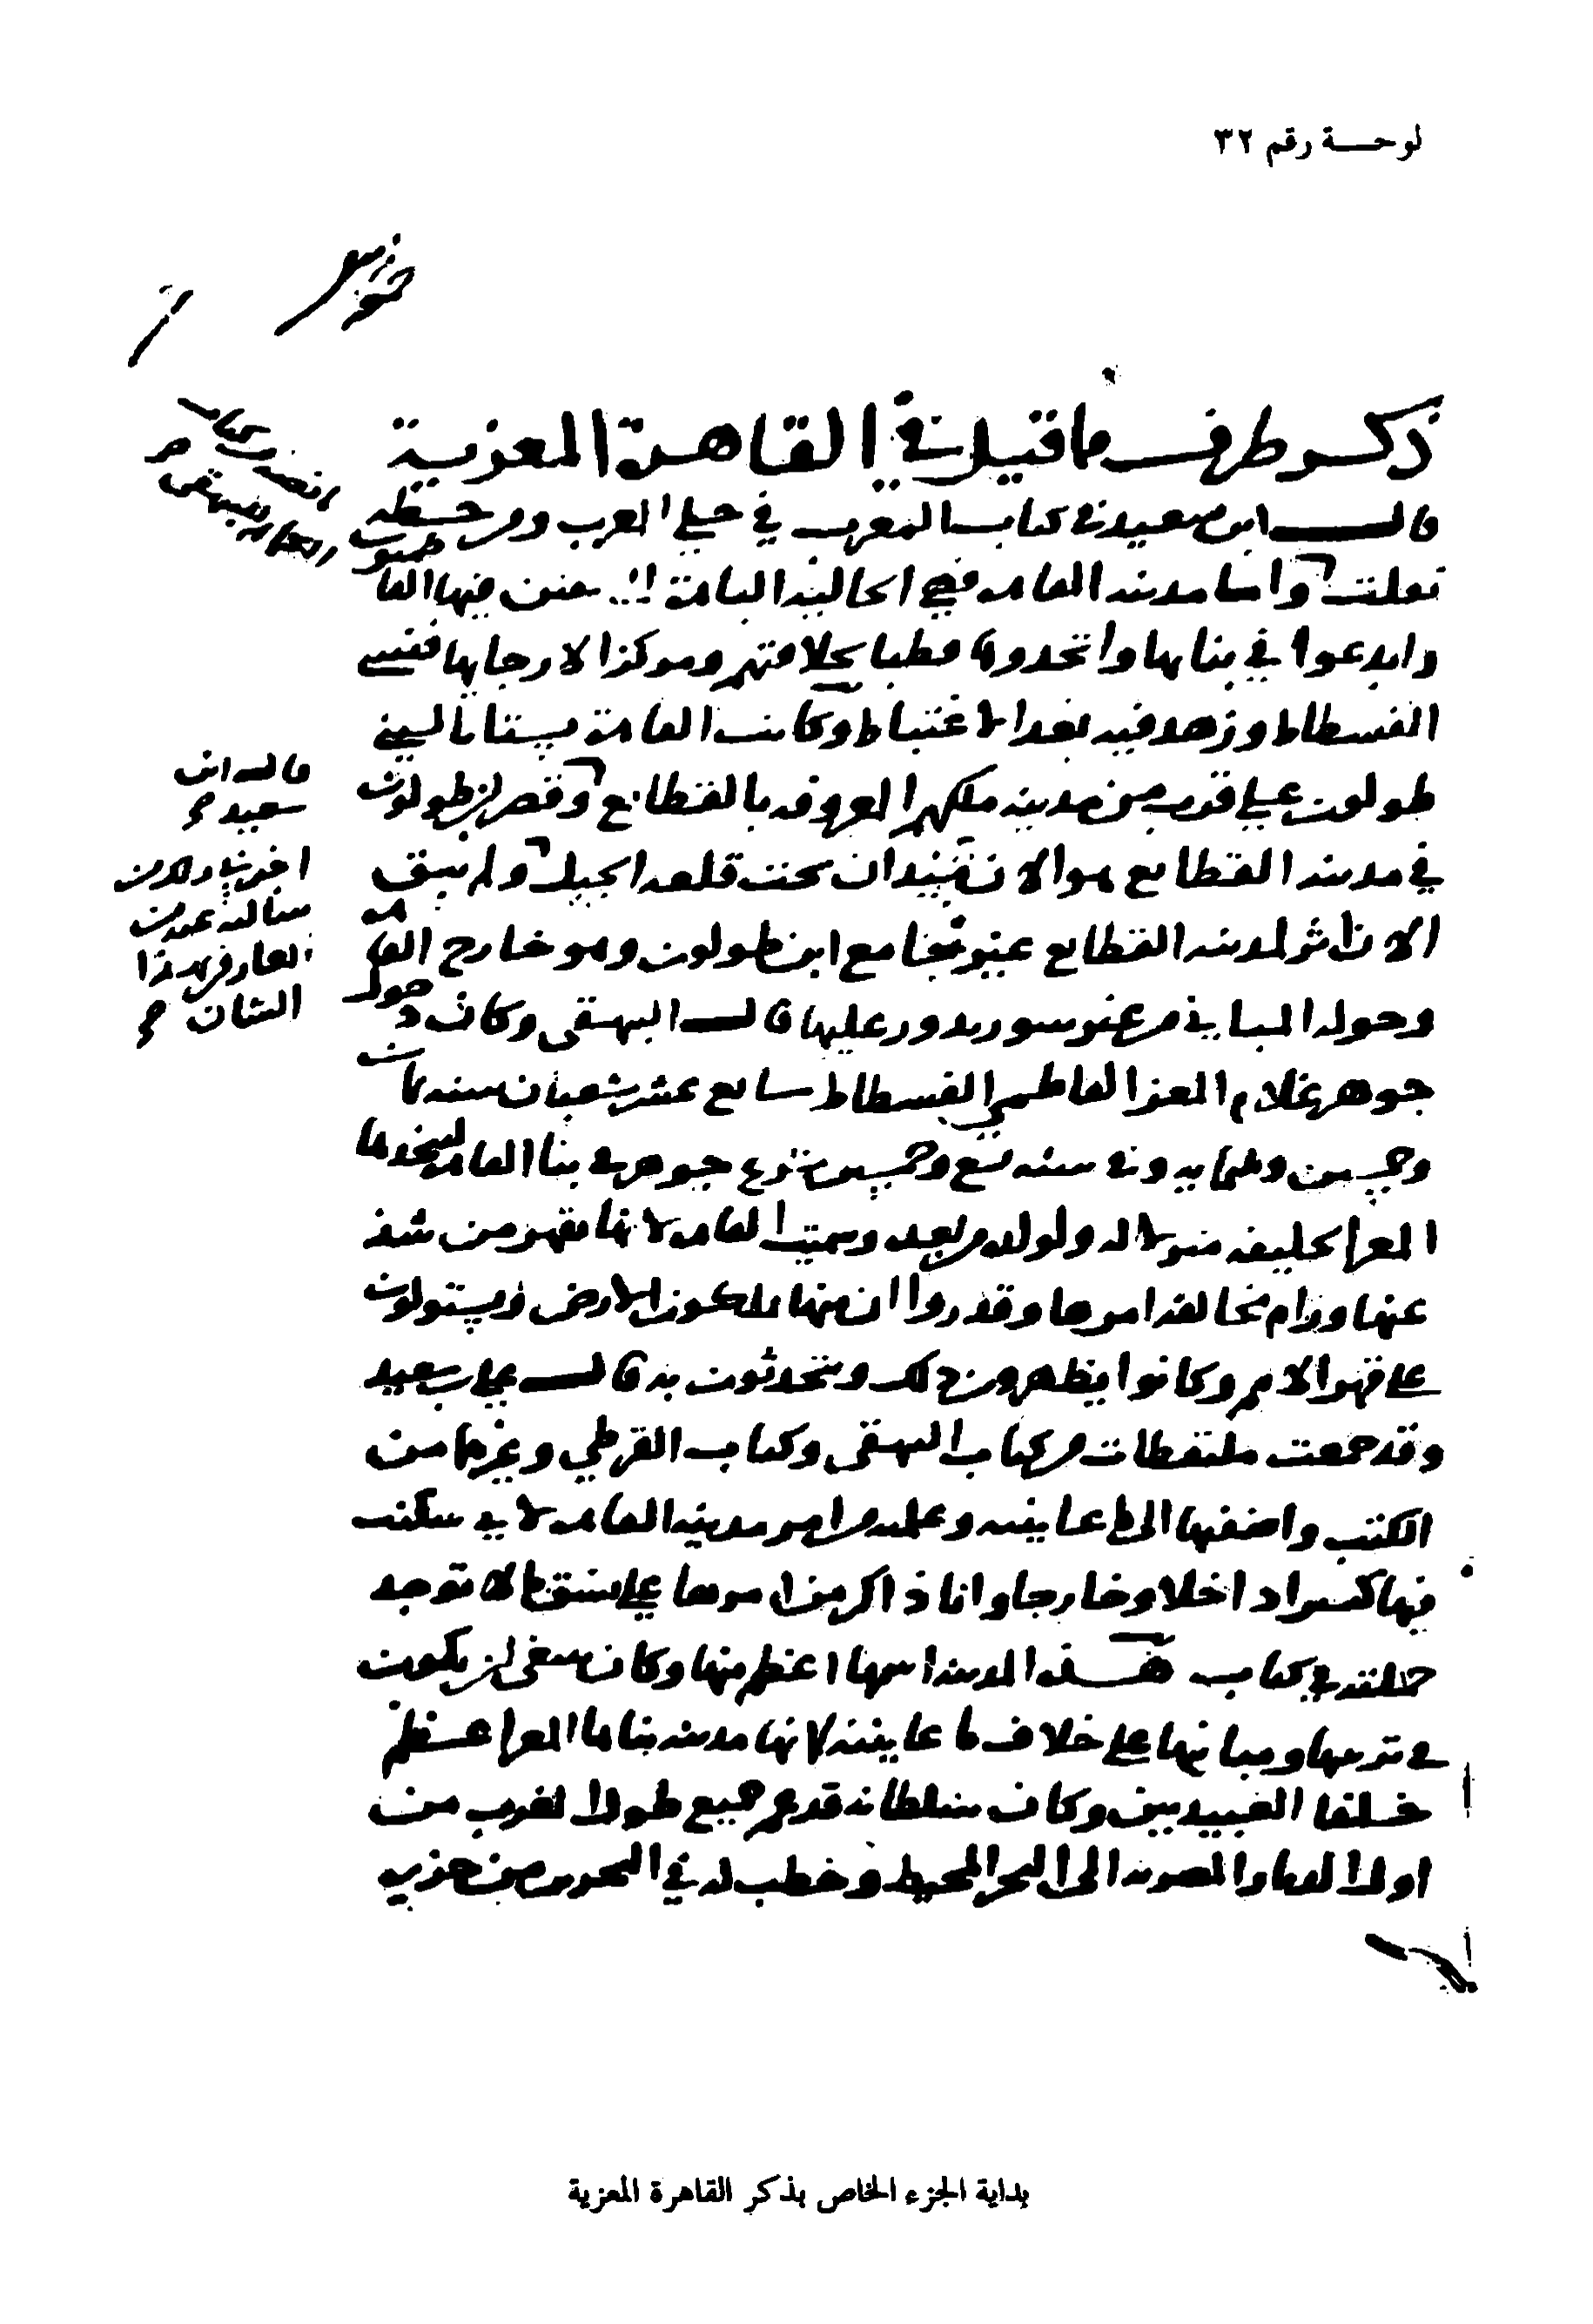 لوحـة رقم ٣٢
ذكر طرف ما قيل في القاهرة المعزية
قال ابن سعيد في كتاب المغرب في حلي المغرب ومن خطه
نقلت واما مدينة القاهره فهي الحالية الباهرة التي تفنن فيها الفاطميون
وابدعوا في بنايها واتخدوها قطبا لخلافتهم ومركزا لارجايها فنسي
الفسطاط وزهد فيه بعد الاغتباط وكانت القاهرة بستانا لبني
طولون علي قرب من مدينة ملكهم المعروفه بالقطايع وقصر ابن طولون
في مدينة القطايع هو الان تحت قلعة الجبل ولم يبق
الان اثر لمدينة القطايع غير جامع ابن طولون وهو خارج القاهره
وحوله المباني من غير سور يدور عليها قال البيهقى وكان دخول
جوهر غلام المعز الفاطمي الفسطاط سابع عشر شعبان سنه ثمان
وخمسين وثلثمايه وفي سنه تسع وخمسين شرع جوهر في بنا القاهره ليتخدها
المعز الخليفه منزلا له ولولده من بعده وسميت القاهره لانها تقهر من شذ
عنها ورام مخالفة امرها وقدروا ان منها يملكون الارض ويستولون
على قهر الامم وكانوا يظهرون ذلك ويتحدثون به قال علي بن سعيد
وقد جمعت ملتقطات من كتاب البيهقى وكتاب القرطي وغيرهما من
الكتب واضفتها الى ما عاينته وعلمته من امر مدينة القاهره لاني سكنت
فيها كثيرا داخلا وخارجا وانا ذاكر من امرها علي نسق ما لا توجد
جملته في كتاب هذه المدينة اسمها اعظم منها وكان ينبغي ان يكون
في ترتيبها ومبانيها علي خلاف ما عاينته لانها مدينة بناها المعز اعظم
خلفا العبيديين وكان سلطانه قد عم جميع طول المغرب من
اول الديار المصرية الى البحر المحيط وخطب له في البحرين من جزيرة
قال ابن
سعيد
اخبرني والدي
سالت عن
العارفين بهذا
الشان
بداية الجزء الخاص بذكر القاهرة المعزية